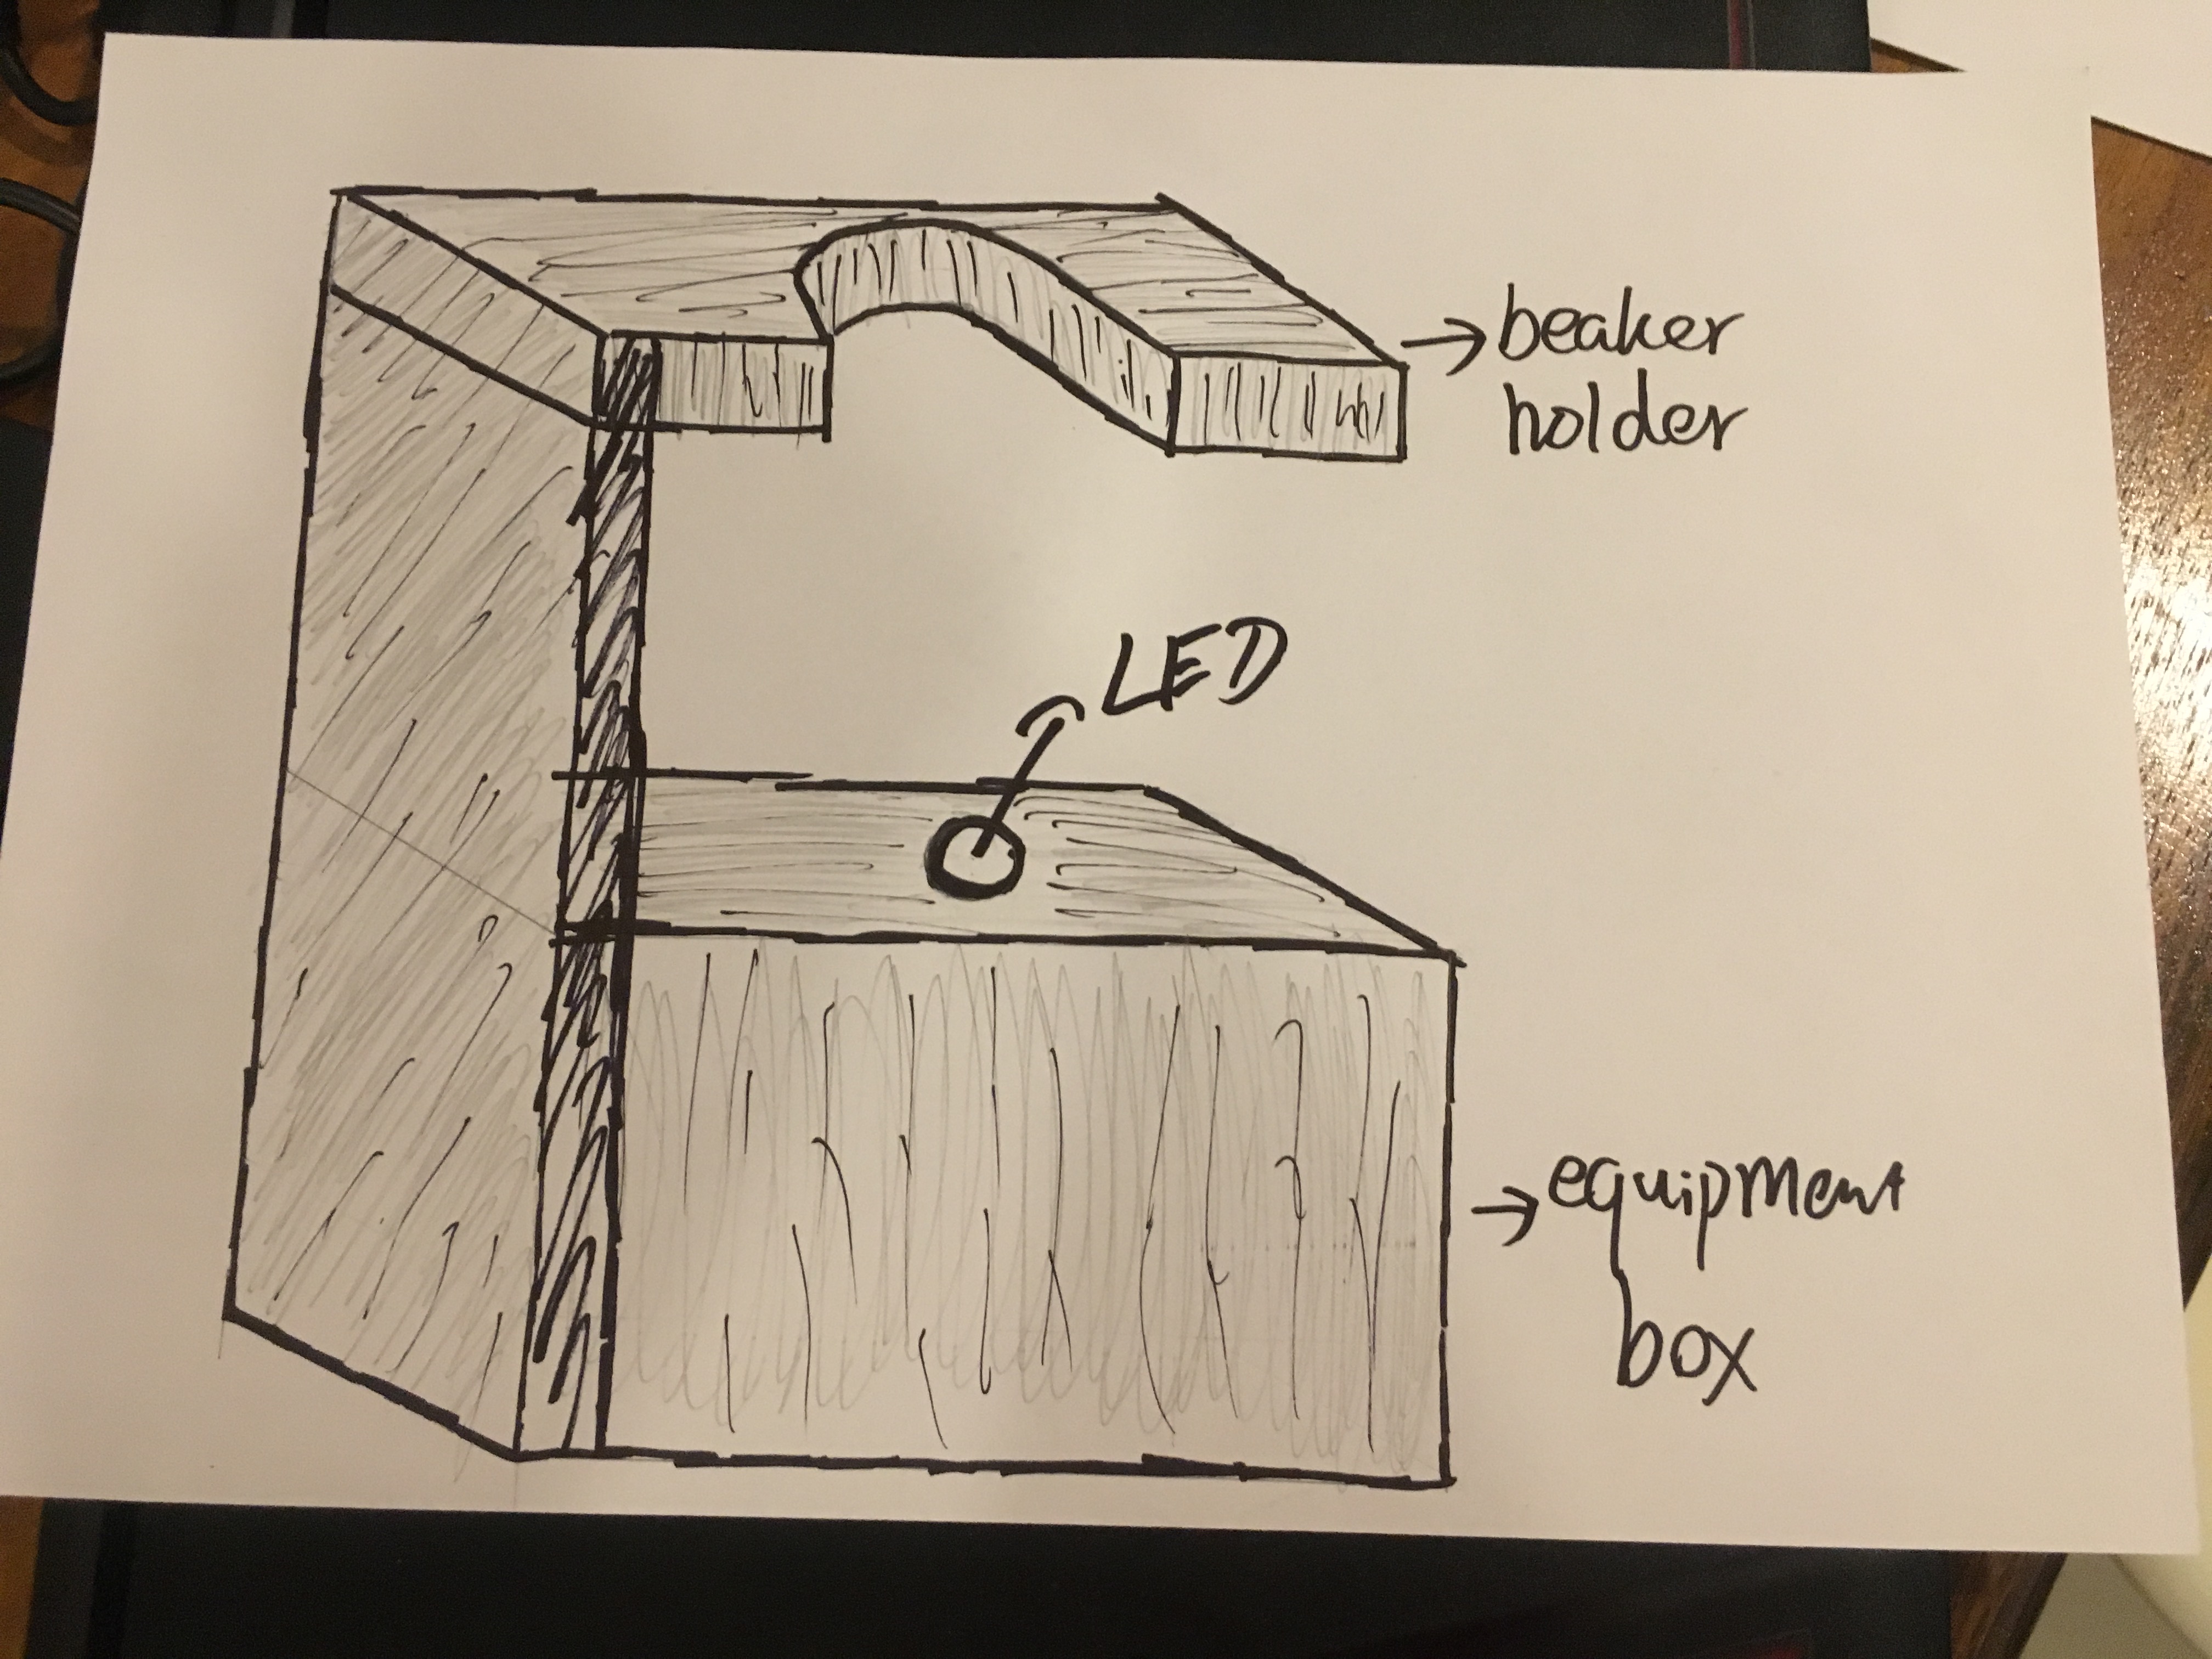 beaker
holder
LED
equipment
box